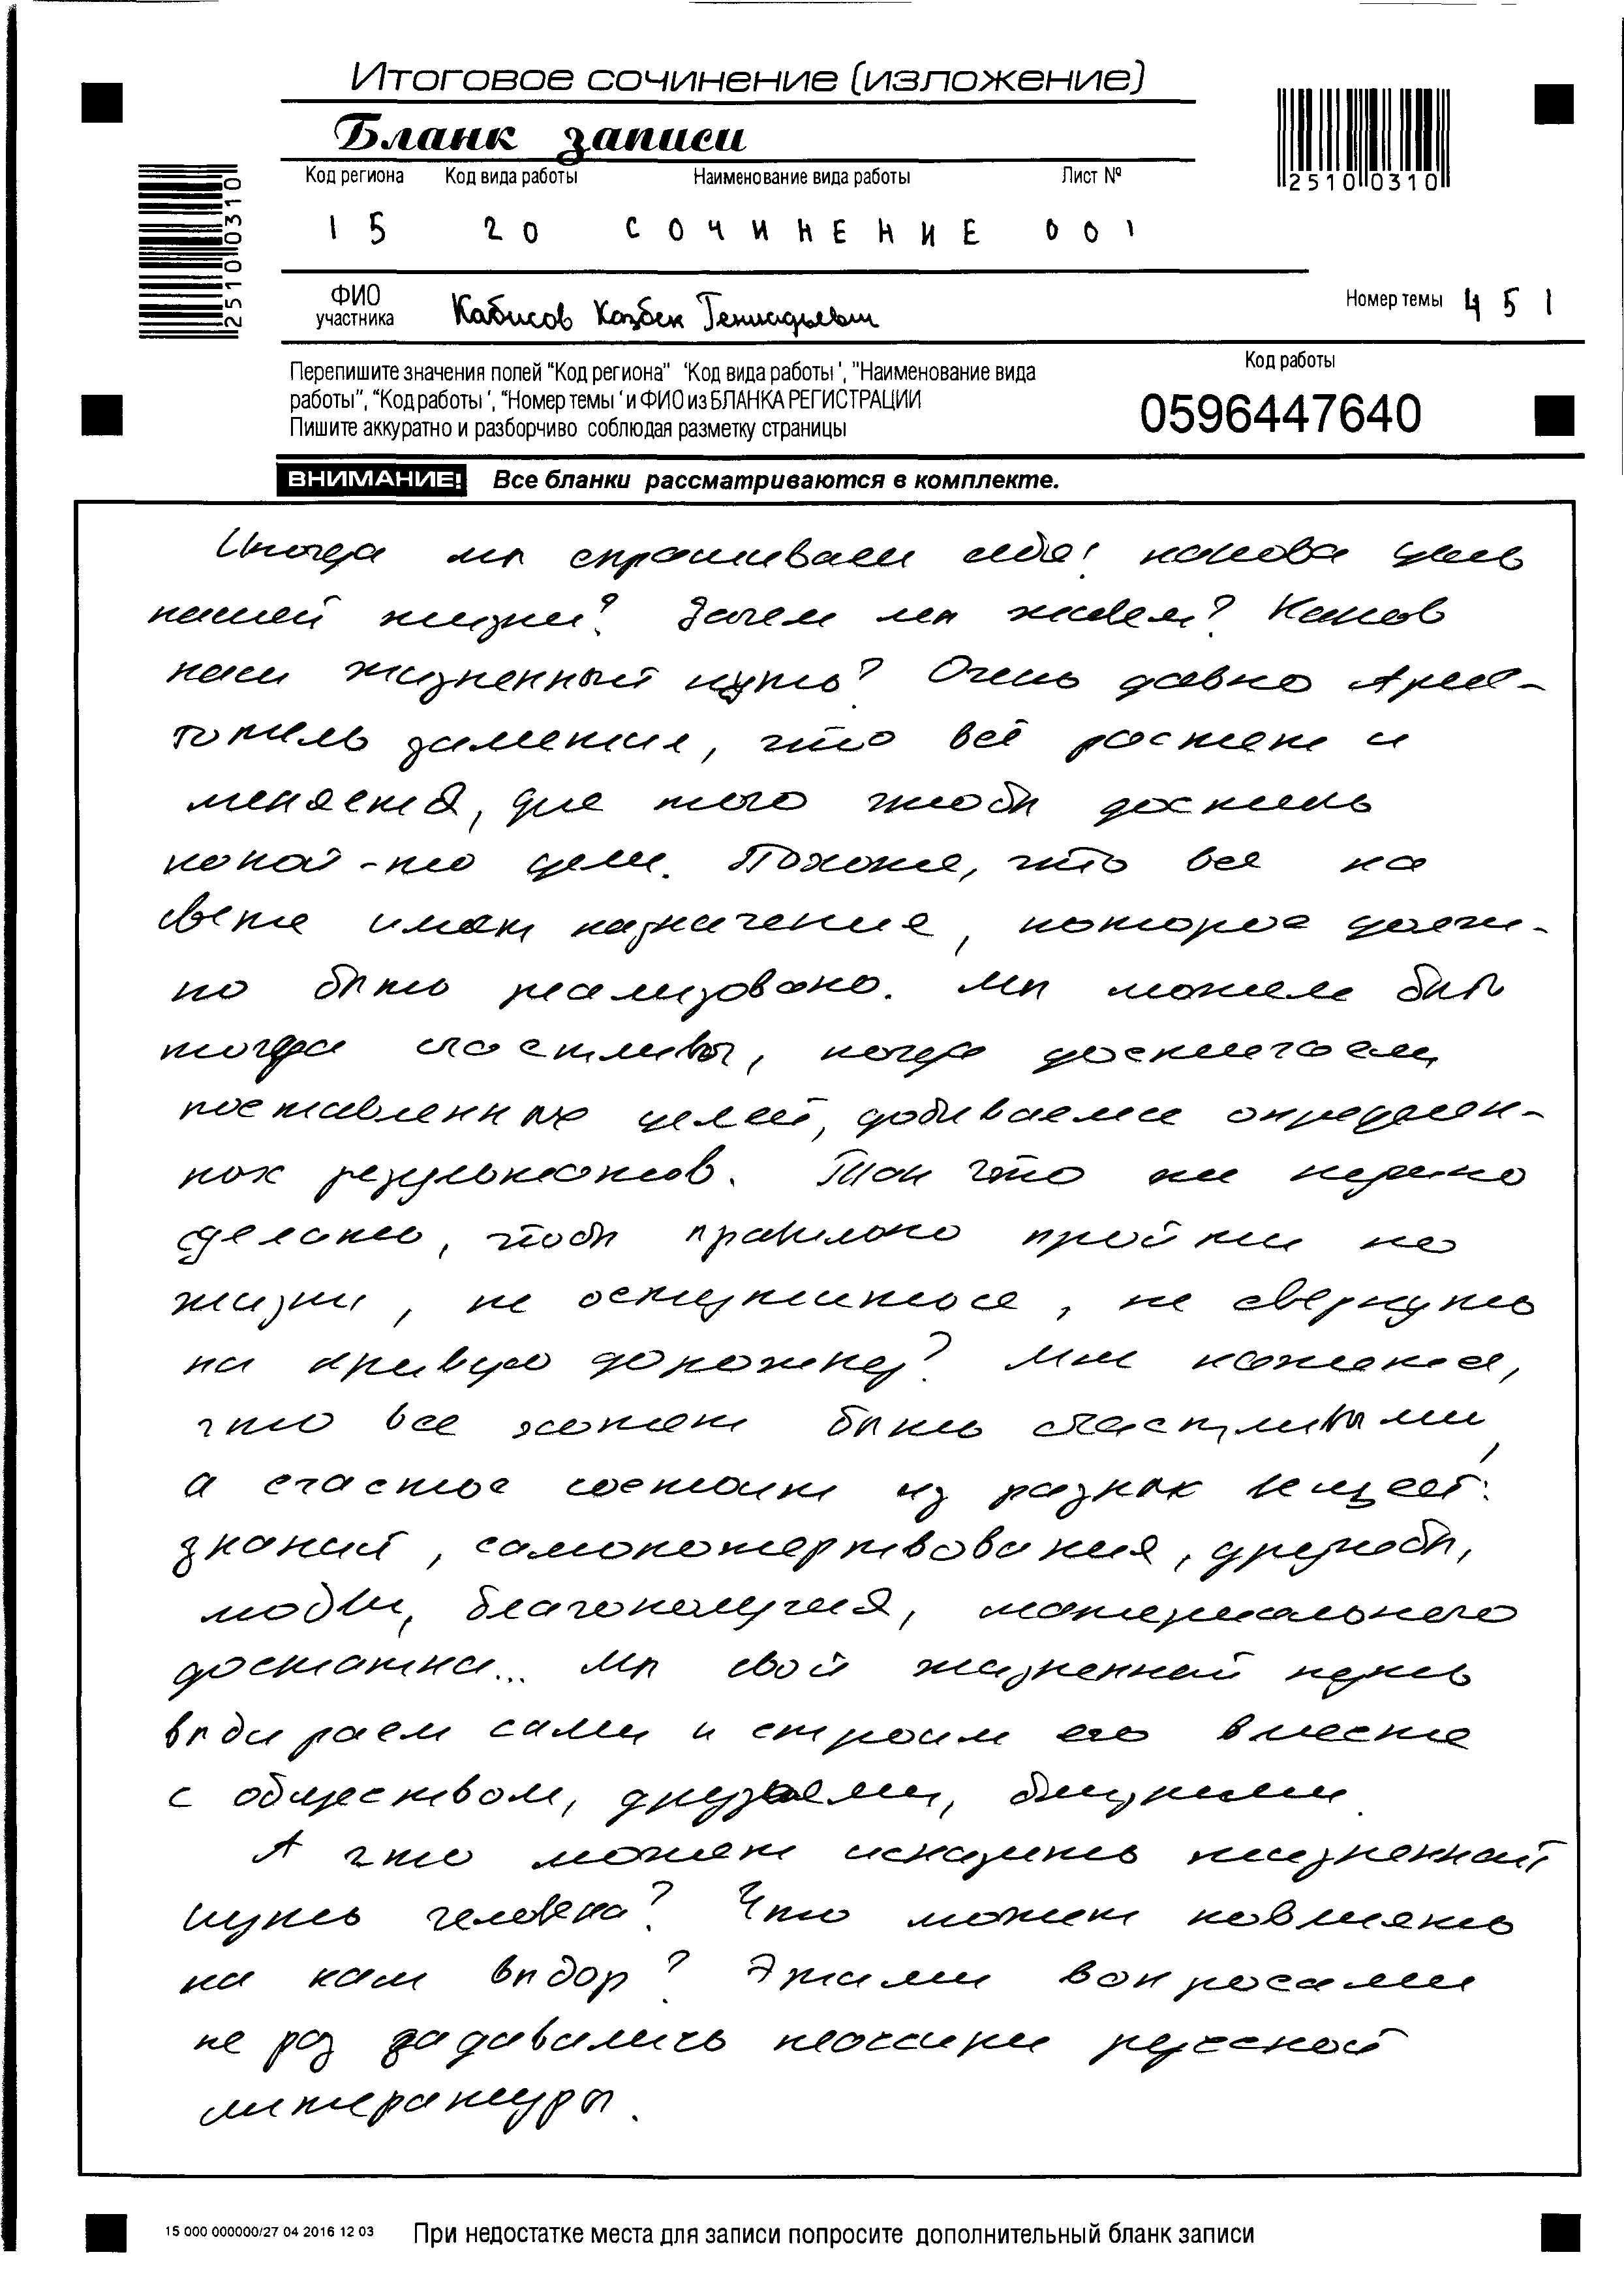 Итоговое сочинение (изложение)
Бланк записи
Код региона Код вида работы Наименование вида работы Лист №
15 20 СОЧИНЕНИЕ 001
2510 0310
2510 0310
ФИО участника Кабисов Казбек Геннадьевич
Номер темы 451
Перепишите значения полей "Код региона" 'Код вида работы', "Наименование вида
работы", "Код работы', "Номер темы' и ФИО из БЛАНКА РЕГИСТРАЦИИ
Пишите аккуратно и разборчиво соблюдая разметку страницы
Код работы
0596447640
ВНИМАНИЕ! Все бланки рассматриваются в комплекте.
Иногда мы спрашиваем себя: какова цель
нашей жизни? Зачем мы живем? Каков
наш жизненный путь? Очень давно Арис-
тотель заметил, что всё растет и
меняется, для того чтобы достичь
какой-то цели. Похоже, что все на
свете имеет назначение, которое долж-
но быть реализовано. Мы можем быть
тогда счастливы, когда достигаем
поставленных целей, добиваемся определен-
ных результатов. Так что же нужно
сделать, чтобы правильно пройти по
жизни, не оступиться, не свернуть
на кривую дорожку? Мне кажется,
что все хотят быть счастливыми,
а счастье состоит из разных вещей:
знаний, самопожертвования, дружбы,
любви, благополучия, материального
достатка... Мы свой жизненный путь
выбираем сами и строим его вместе
с обществом, друзьями, близкими.
А что может исказить жизненный
путь человека? Что может повлиять
на наш выбор? Этими вопросами
не раз задавались классики русской
литературы.
15 000 000000/27 04 2016 12 03 При недостатке места для записи попросите дополнительный бланк записи